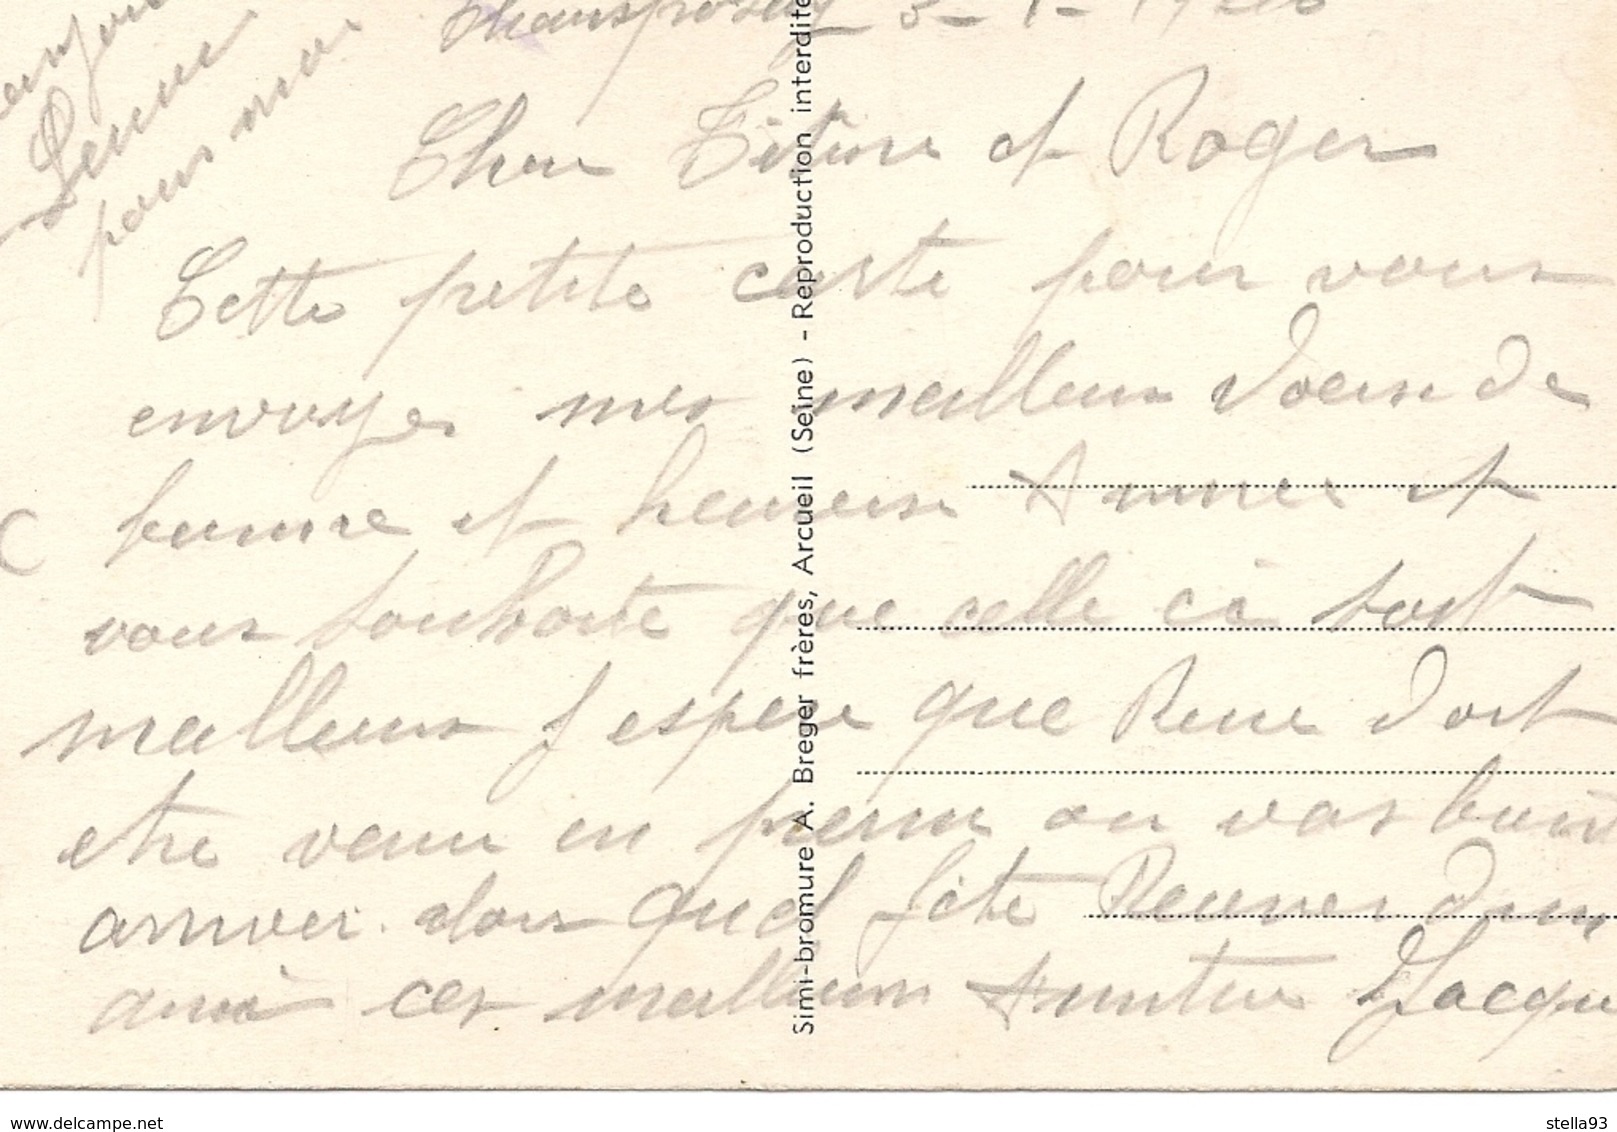 pour moi
Cher Titine et Roger
Cette petite carte pour vous
envoyer mes meilleur Voeux de
bonne et heureuse Année et
vous souhaite que celle ci soit
meilleur j espere que Rene doit
etre venu en perm ou vas bien
arriver. alors quel fète Rene
aussi ces meilleurs Jacqu
Simi-bromure A. Breger frères, Arcueil (Seine) - Reproduction interdite
www.delcampe.net
stella93